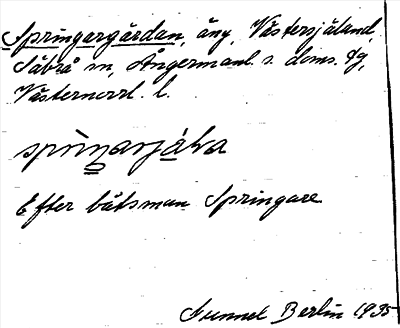 Springargärdan, äng, Västersjäland,
Säbrå sn, Ångermanl. s. doms. tg,
Västernorrl. l.
spriŋarjäḷa
Efter båtsman Springare
Gunnel Berlin 1935